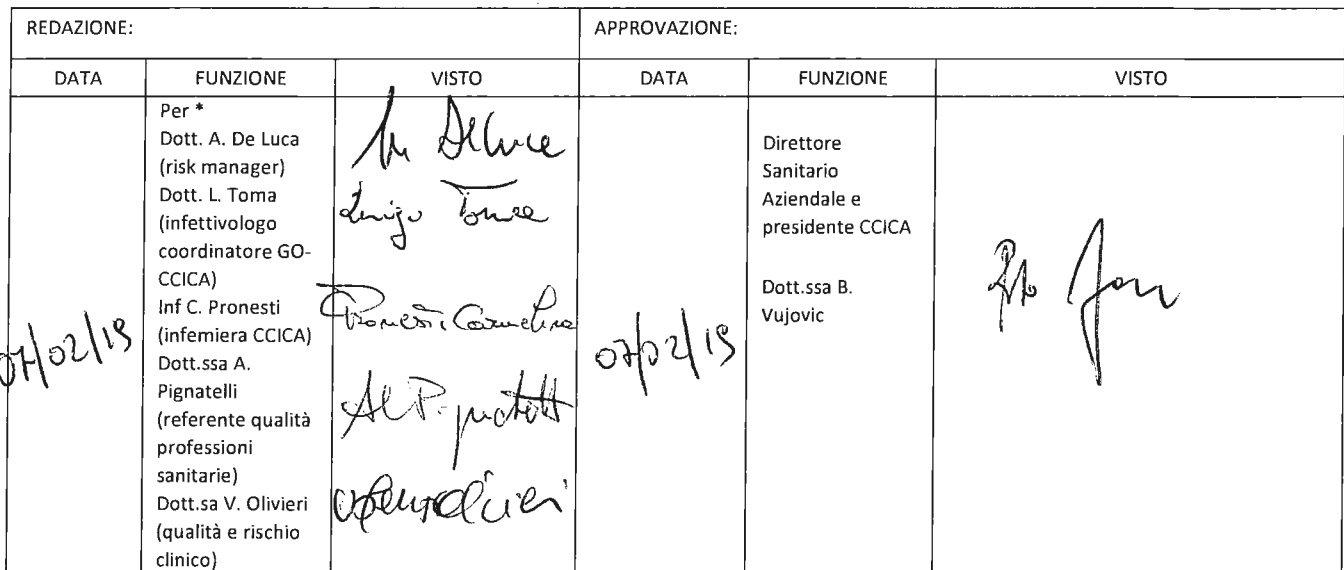 REDAZIONE:
APPROVAZIONE:
DATA
FUNZIONE
VISTO
DATA
FUNZIONE
VISTO
07/02/19
Per *
Dott. A. De Luca
(risk manager)
Dott. L. Toma
(infettivologo
coordinatore GO-
CCICA)
Inf C. Pronesti
(infemiera CCICA)
Dott.ssa A.
Pignatelli
(referente qualità
professioni
sanitarie)
Dott.sa V. Olivieri
(qualità e rischio
clinico)
Luigi Toma
Pronesti Carmelina
07/02/19
Direttore
Sanitario
Aziendale e
presidente CCICA
Dott.ssa B.
Vujovic